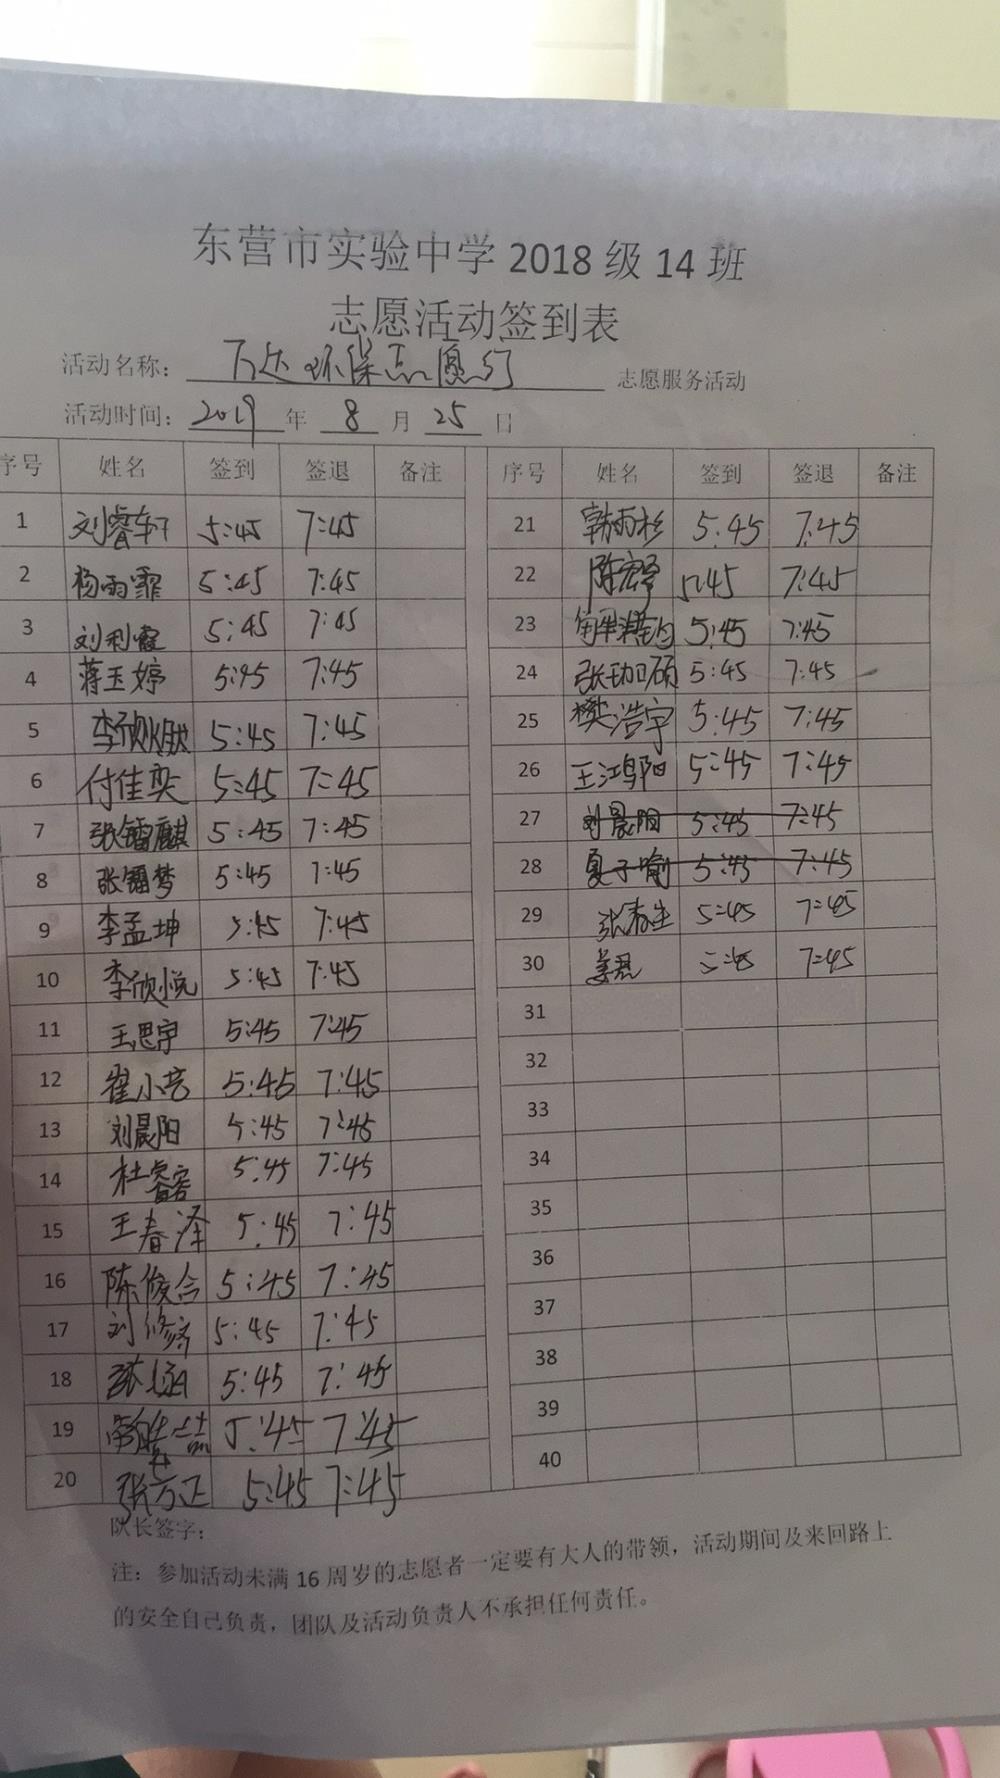 东营市实验中学2018级14班
志愿活动签到表
活动名称：万达环保志愿行 志愿服务活动
活动时间：2019年8月25日
序号 姓名 签到 签退 备注 序号 姓名 签到 签退 备注
1 刘睿轩 5:45 7:45 21 韩雨杉 5:45 7:45
2 杨雨霏 5:45 7:45 22 陈宏泽 5:45 7:45
3 刘利霞 5:45 7:45 23 5:45 7:45
4 蒋玉婷 5:45 7:45 24 张珈硕 5:45 7:45
5 李欣 5:45 7:45 25 樊浩宇 5:45 7:45
6 付佳奕 5:45 7:45 26 王江阳 5:45 7:45
7 张镭麒 5:45 7:45 27 刘晨阳 5:45 7:45
8 张镭梦 5:45 7:45 28 夏子喻 5:45 7:45
9 李孟坤 5:45 7:45 29 张春生 5:45 7:45
10 李欣悦 5:45 7:45 30 姜君 5:45 7:45
11 王思宇 5:45 7:45 31
12 崔小艺 5:45 7:45 32
13 刘晨阳 5:45 7:45 33
14 杜睿容 5:45 7:45 34
15 王春泽 5:45 7:45 35
16 陈俊合 5:45 7:45 36
17 刘修齐 5:45 7:45 37
18 张 5:45 7:45 38
19 5:45 7:45 39
20 张方正 5:45 7:45 40
队长签字：
注：参加活动未满16周岁的志愿者一定要有大人的带领，活动期间及来回路上
的安全自己负责，团队及活动负责人不承担任何责任。